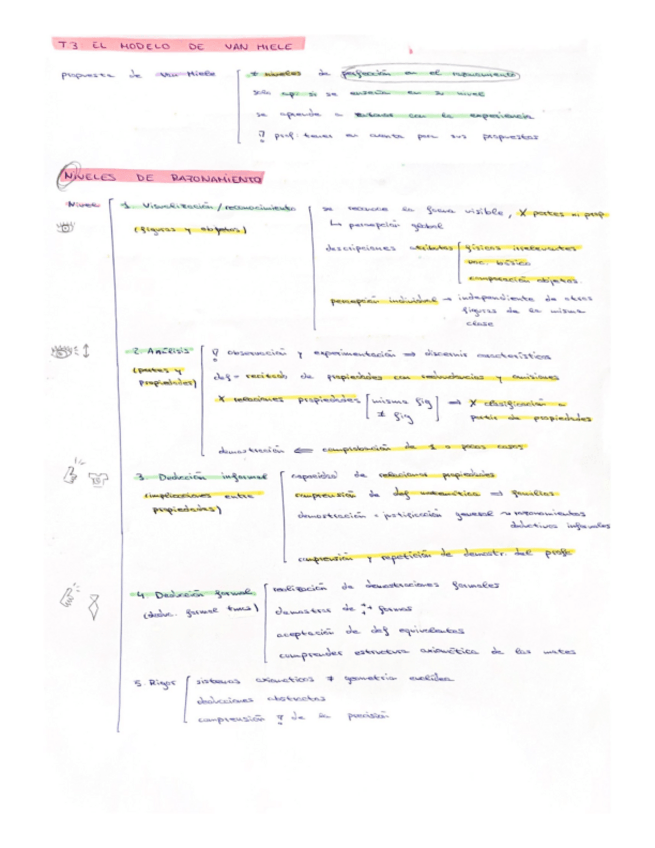 T.3 EL MODELO DE VAN HIELE
propuesta de Van Hiele
≠ niveles de perfección en el razonamiento
solo apr. si se enseña en su nivel
se aprende a razonar con la experiencia
prof. tener en cuenta para sus propuestas
NIVELES DE RAZONAMIENTO
Nivel
1. Visualización / reconocimiento
(figuras y objetos)
se reconoce la forma visible, X partes ni prop
↳ percepción global
descripciones atributos
físicos irrelevantes
voc. básico
comparación objetos.
percepción individual → independiente de otras
figuras de la misma
clase
2. Análisis
(partes y
propiedades)
observación y experimentación ⇒ discernir características
def = recitado de propiedades con redundancias y omisiones
X relaciones propiedades [misma fig ≠ fig] ⇒ X clasificación a
partir de propiedades
demostración ⇐ comprobación de 1 o pocos casos
3. Deducción informal
(implicaciones entre
propiedades)
capacidad de relacionar propiedades
comprensión de def matemática ⇒ familias
demostración = justificación general ~ razonamientos
deductivos informales
comprensión y repetición de demostr. del profe
4. Deducción formal
(deduc. formal
realización de demostraciones formales
demostrar de ≠ formas
aceptación de def equivalentes
comprender estructura axiomática de las mates
5. Rigor
sistemas axiomáticos ≠ geometría euclídea
deducciones abstractas
comprensión de la precisión